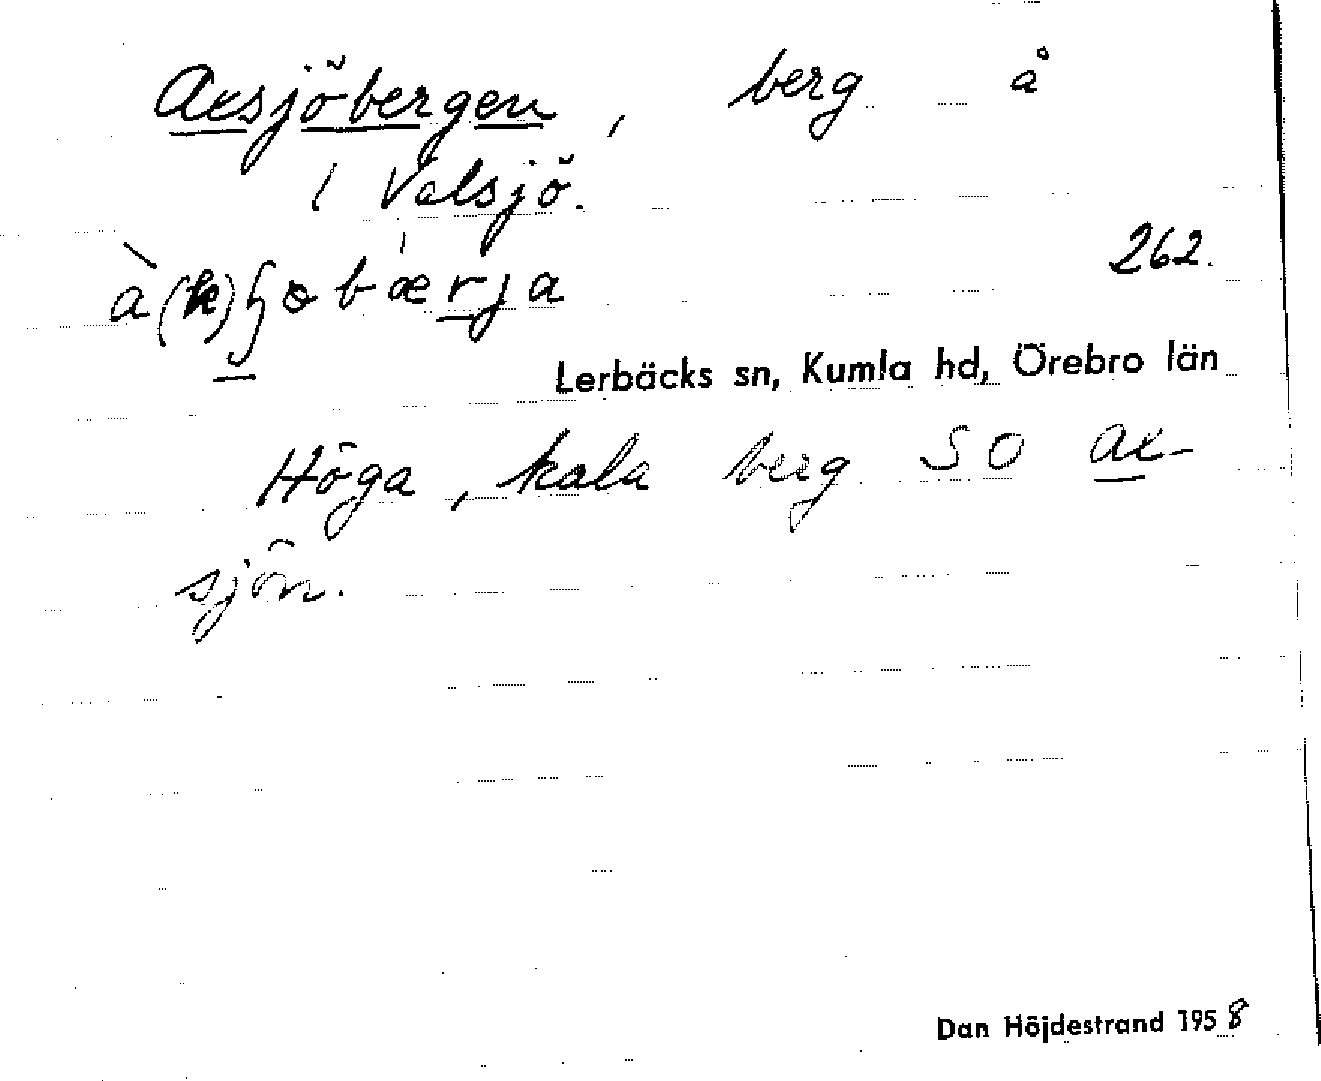 Axsjöbergen, berg å
i Valsjö.
262.
Lerbäcks sn, Kumla hd, Örebro län
Höga, kala berg SO Ax-
sjön.
Dan Höjdestrand 1958